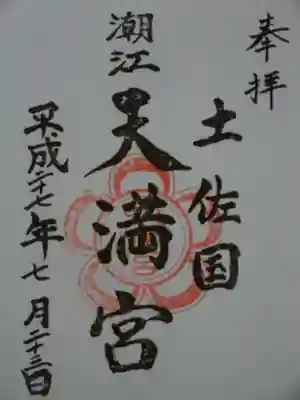 奉拝
土佐国
潮江
天満宮
平成二十七年七月二十三日